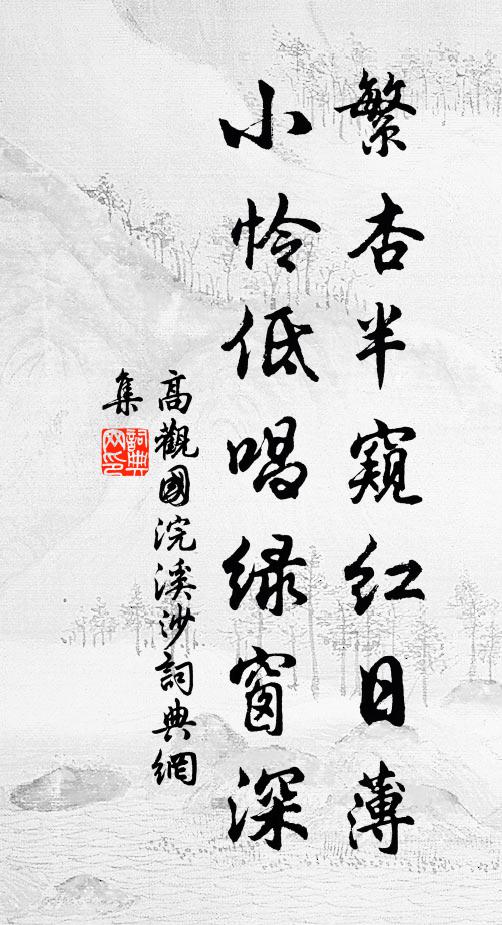 繁杏半窺紅日薄
小怜低唱绿窗深
高觀國浣溪沙詞典網
集
詞典網印